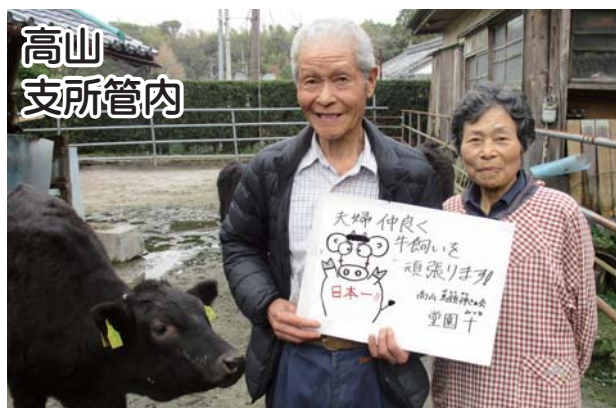 高山
支所管内
夫婦仲良く
牛飼いを
頑張ります!!
日本一!!
高山
堂園